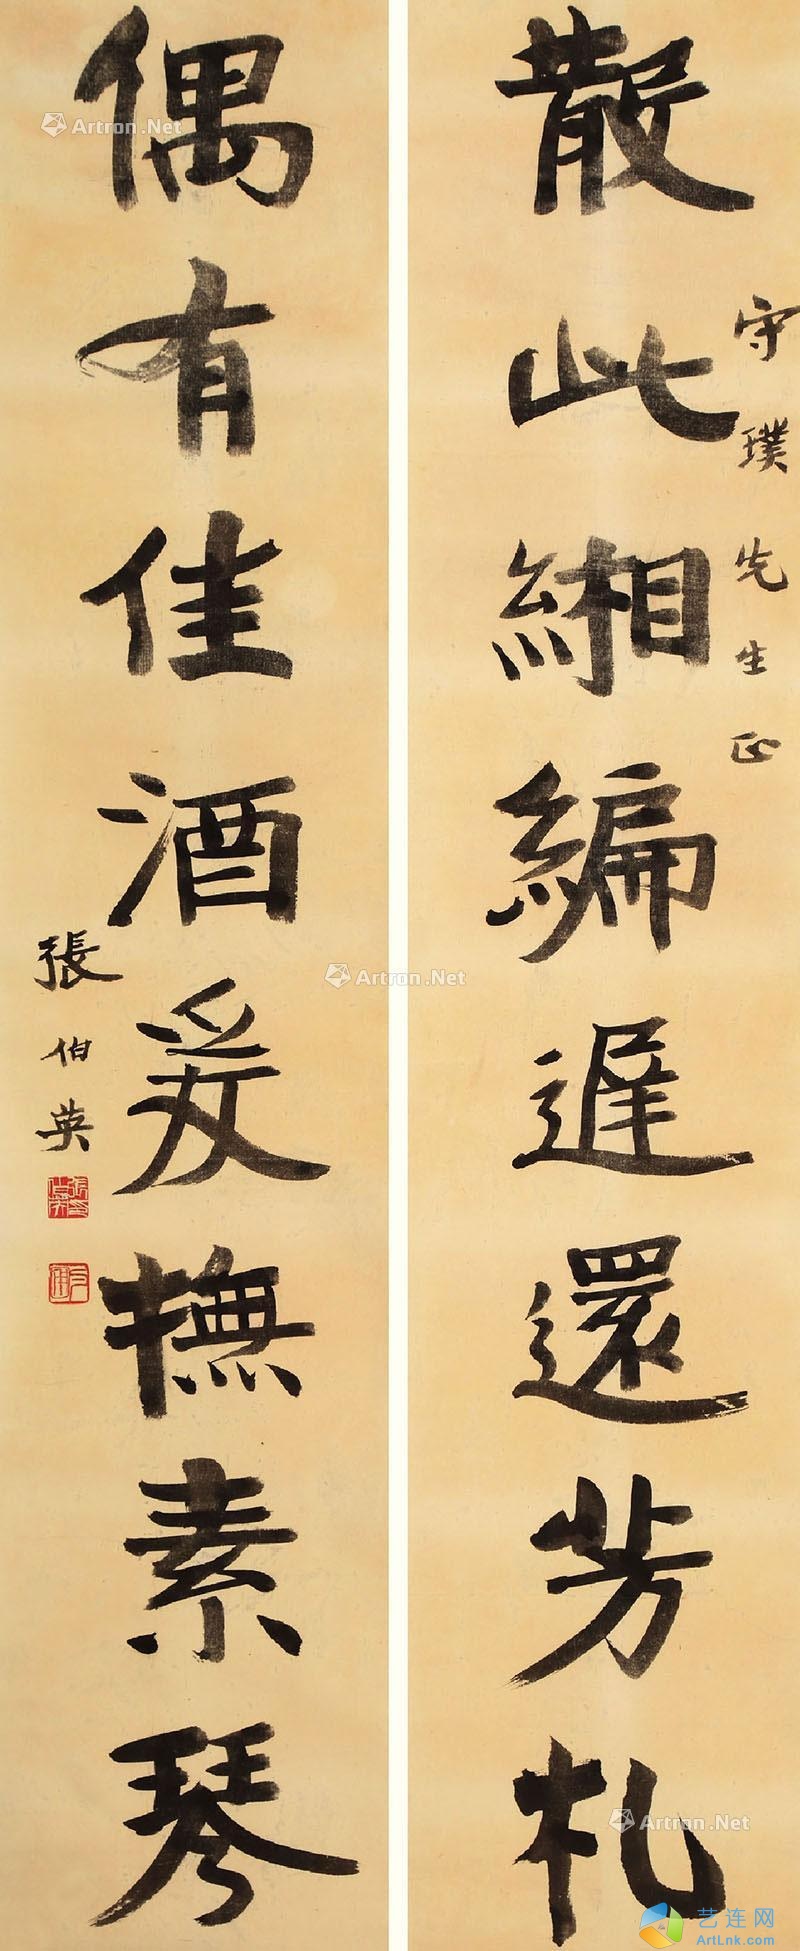 散此緗編遲還芳札
守璞先生正
偶有佳酒爰撫素琴
張伯英
Artron.Net
Artron.Net
Artron.Net
艺连网
ArtLnk.com